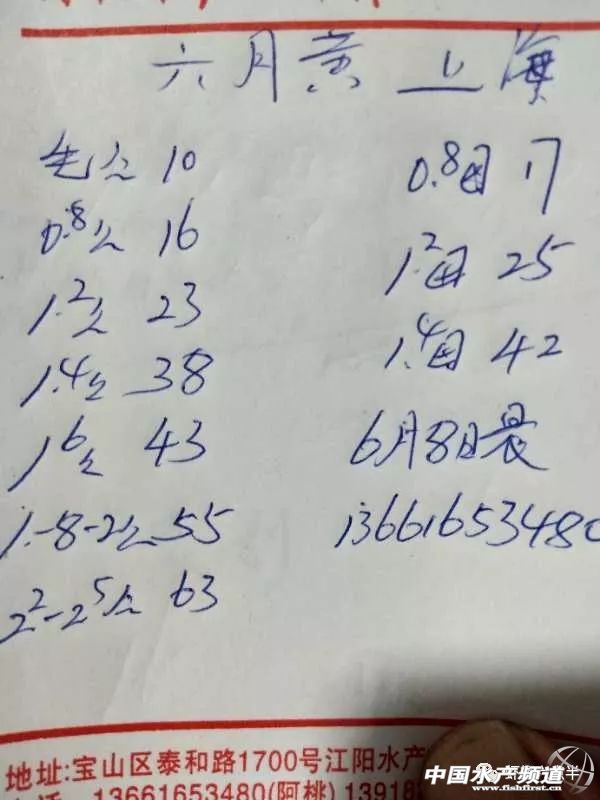 六月黄上海
生公 10
0.8公 16
1.2公 23
1.4公 38
1.6公 43
1.8-2公 55
2.2-2.5公 63
0.8母 17
1.2母 25
1.4母 42
6月8日晨
13661653480
地址:宝山区泰和路1700号江阳水产
13661653480(阿桃) 13918
中国水产频道
www.fishfirst.cn